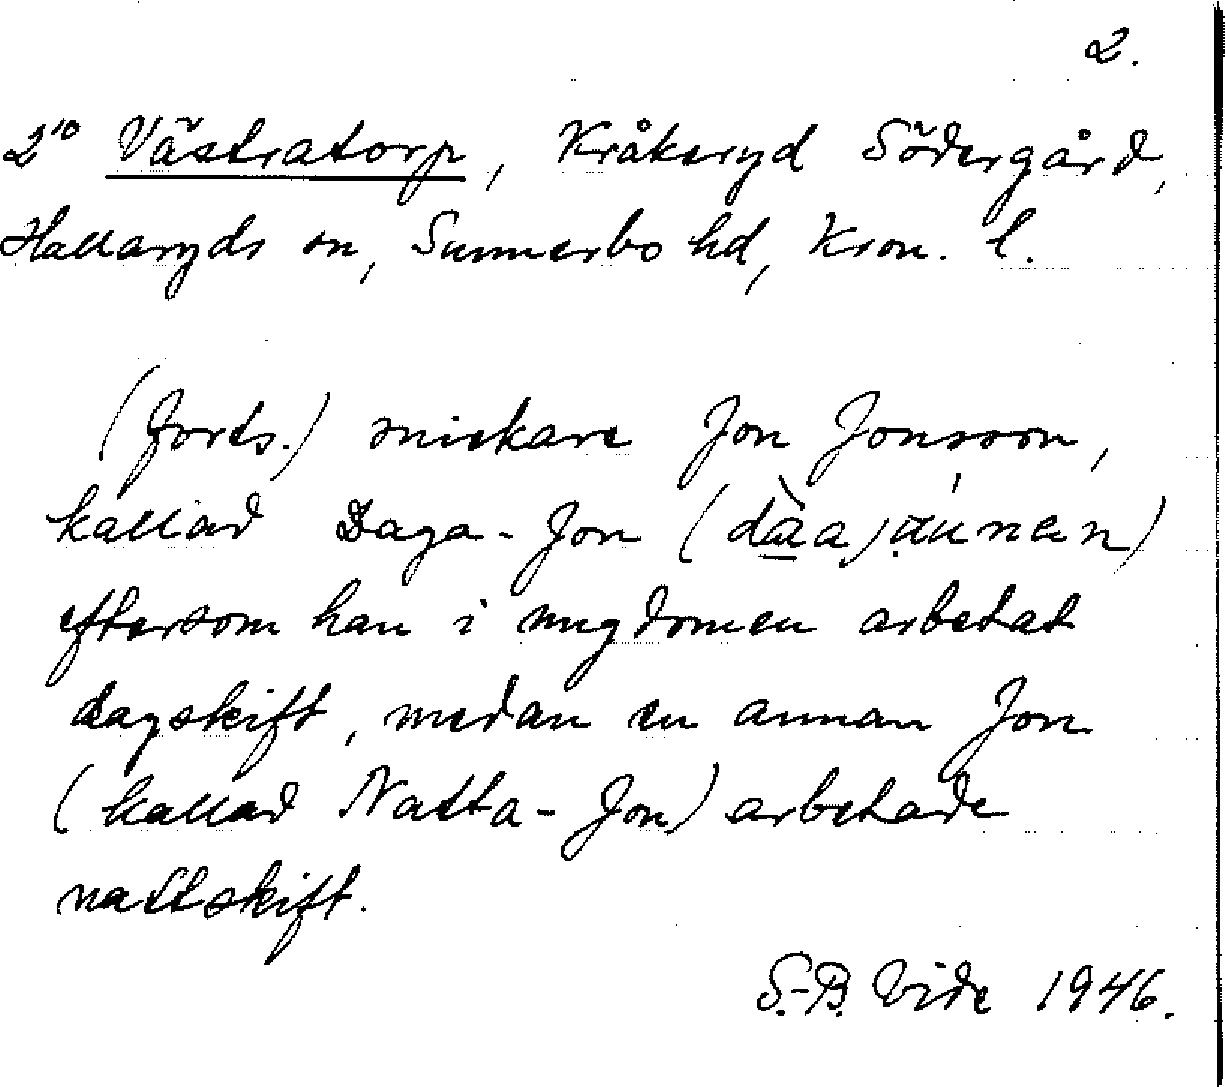 2.
2:o Västratorp, Kråkeryd Södergård,
Hallaryds sn, Sunnerbo hd, Kron. l.
(forts.) snickare Jon Jonsson,
kallad Daga-Jon
eftersom han i ungdomen arbetat
dagskift, medan en annan Jon
(kallad Natta-Jon) arbetade
nattskift.
S.-B. Vide 1946.